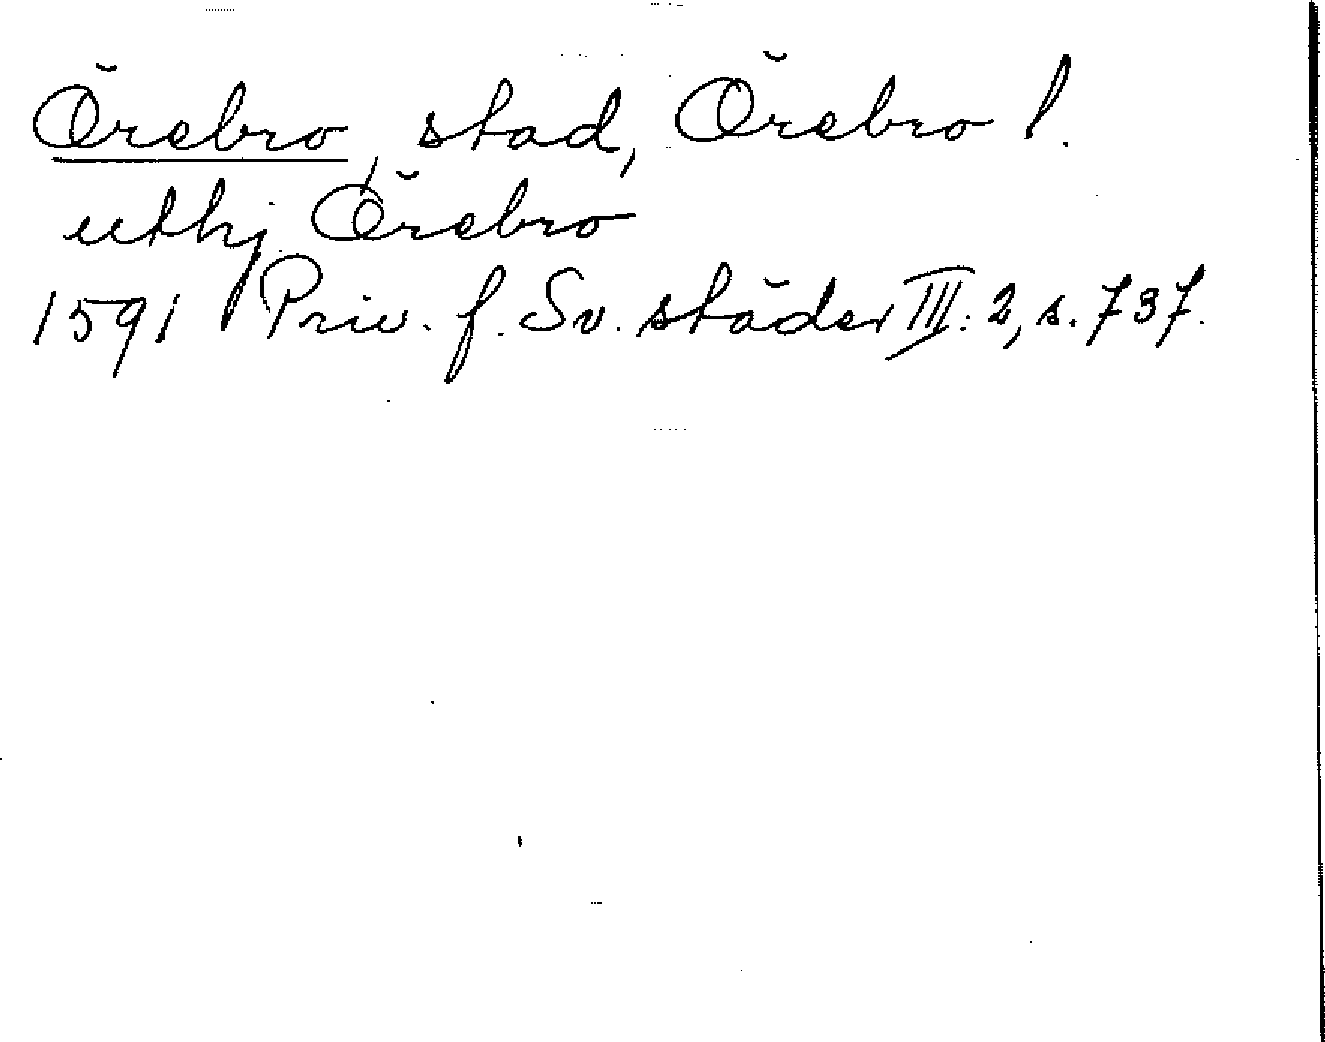 Örebro, stad, Örebro l.
uthj Örebro
1591 Priv. f. Sv. städer III: 2, s. 737.